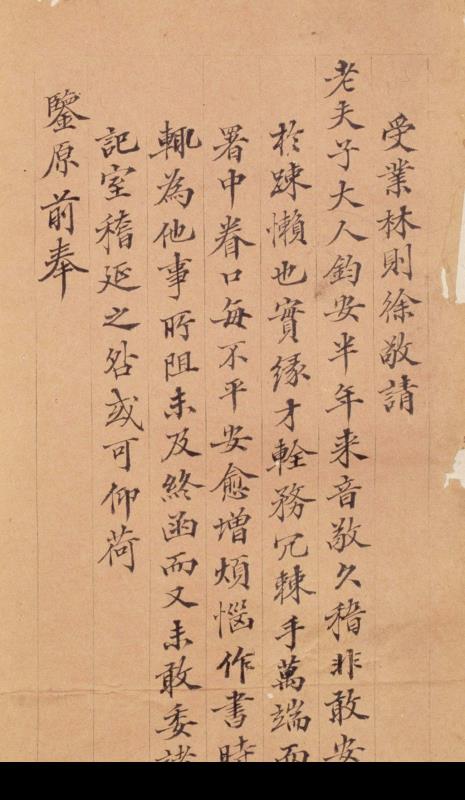 受業林則徐敬請
老夫子大人鈞安半年来音敬久稽非敢安
於踈懶也實緣才輇務冗棘手萬端而
署中眷口每不平安愈增煩惱作書時
輒為他事所阻未及終函而又未敢委諸
記室稽延之咎或可仰荷
鑒原前奉